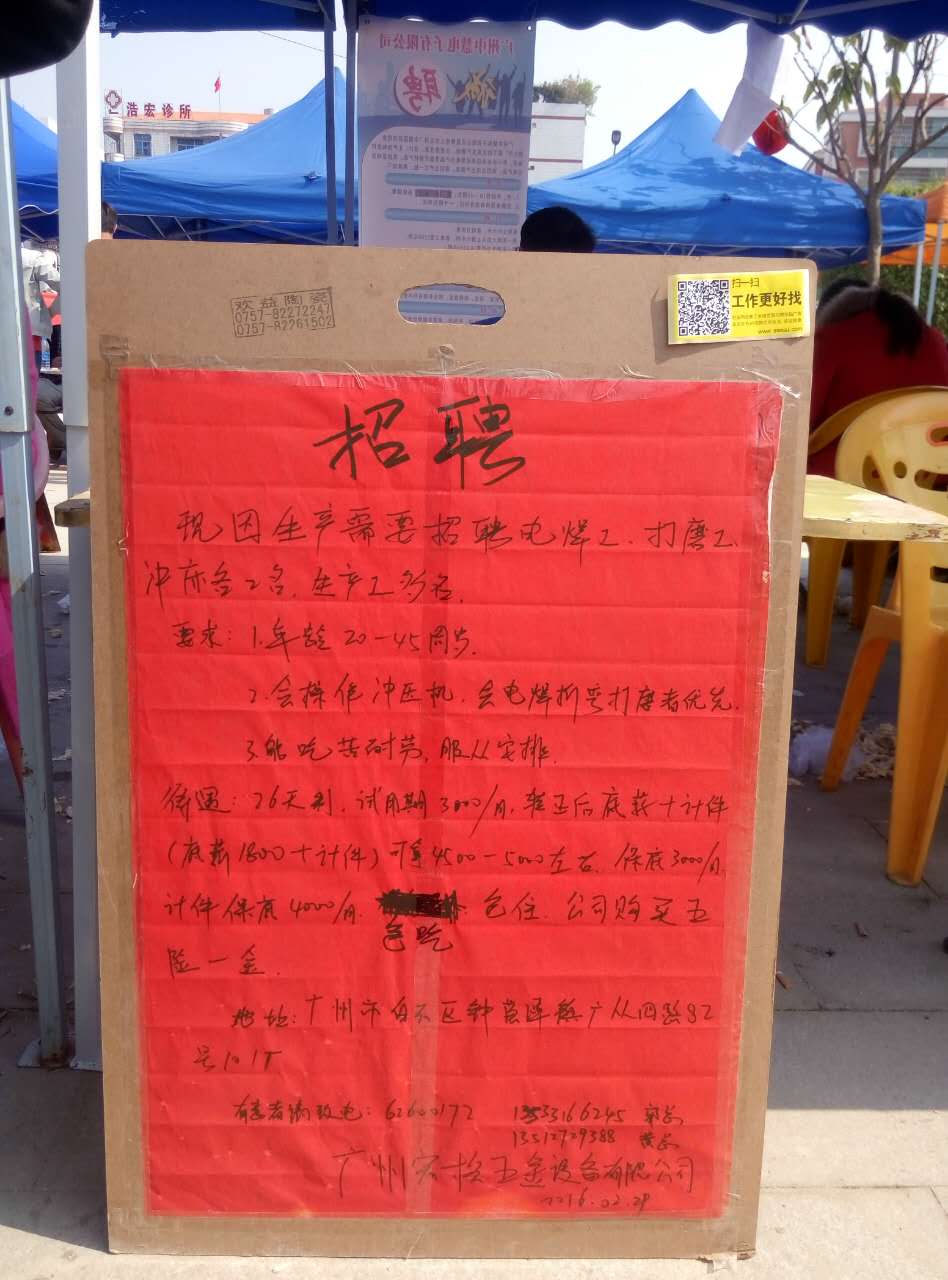 浩宏诊所
广州中慧电子有限公司
聘
欢益陶瓷
0757-82272247
0757-82261502
扫一扫
工作更好找
招聘
现因生产需要招聘电焊工、打磨工、
冲床各2名,生产工多名.
要求:1.年龄20-45周岁.
2.会操作冲压机,会电焊折弯打磨者优先.
3.能吃苦耐劳,服从安排.
待遇:26天制,试用期3000/月,转正后底薪+计件
(底薪1800+计件)可拿4500-5000左右.保底3000/月
计件保底4000/月. 包住.公司购买五
包吃
险一金.
地址:广州市白云区钟落潭镇广从四路82
号101
有意者请致电:62600172 13533166245
13512729388 黄
广州宏 五金设备有限公司
2016.02.29